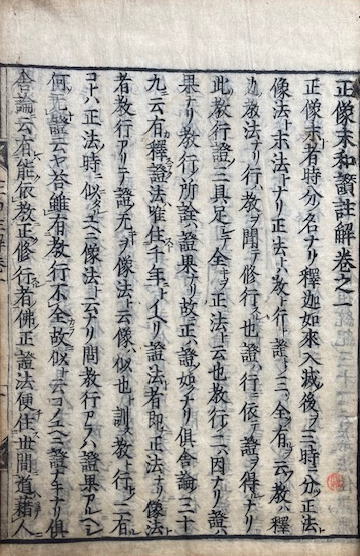 正像末和讃註解卷之一
正像末者時分ノ名ナリ釋迦如來入滅後ヲ三時ニ分ツ正法
像法末法ナリ正法トハ教ト行ト證ト三ツ全ク有ヲ云フ教ハ釋
迦ノ教法ナリ行ハ教ヲ聞テ修行スル也證ハ行ニ依テ證ヲ得ルナリ
此教行證三ツ具足シテ全キヲ正法ト云也教行ノ二ハ因ナリ證ハ
果ナリ教行ノ所詮證果ナリ故正ハ證ノ如シナリ俱舍論三十
九ニ云有釋證法唯住千年トイヘリ證法者即正法ナリ像法
者教行アリテ證无キヲ像法ト云像ハ似也ト訓ス教ト行ト二ツ有
コトハ正法ノ時ニ似タルユヘニ像法ト云ナリ問教行アラハ證果アルヘシ
何无證云ヤ答雖有教行不全故似ト云コノユヘニ證ナキナリ俱
舍論云有能依教正修行者佛正證法便住世間道藉人